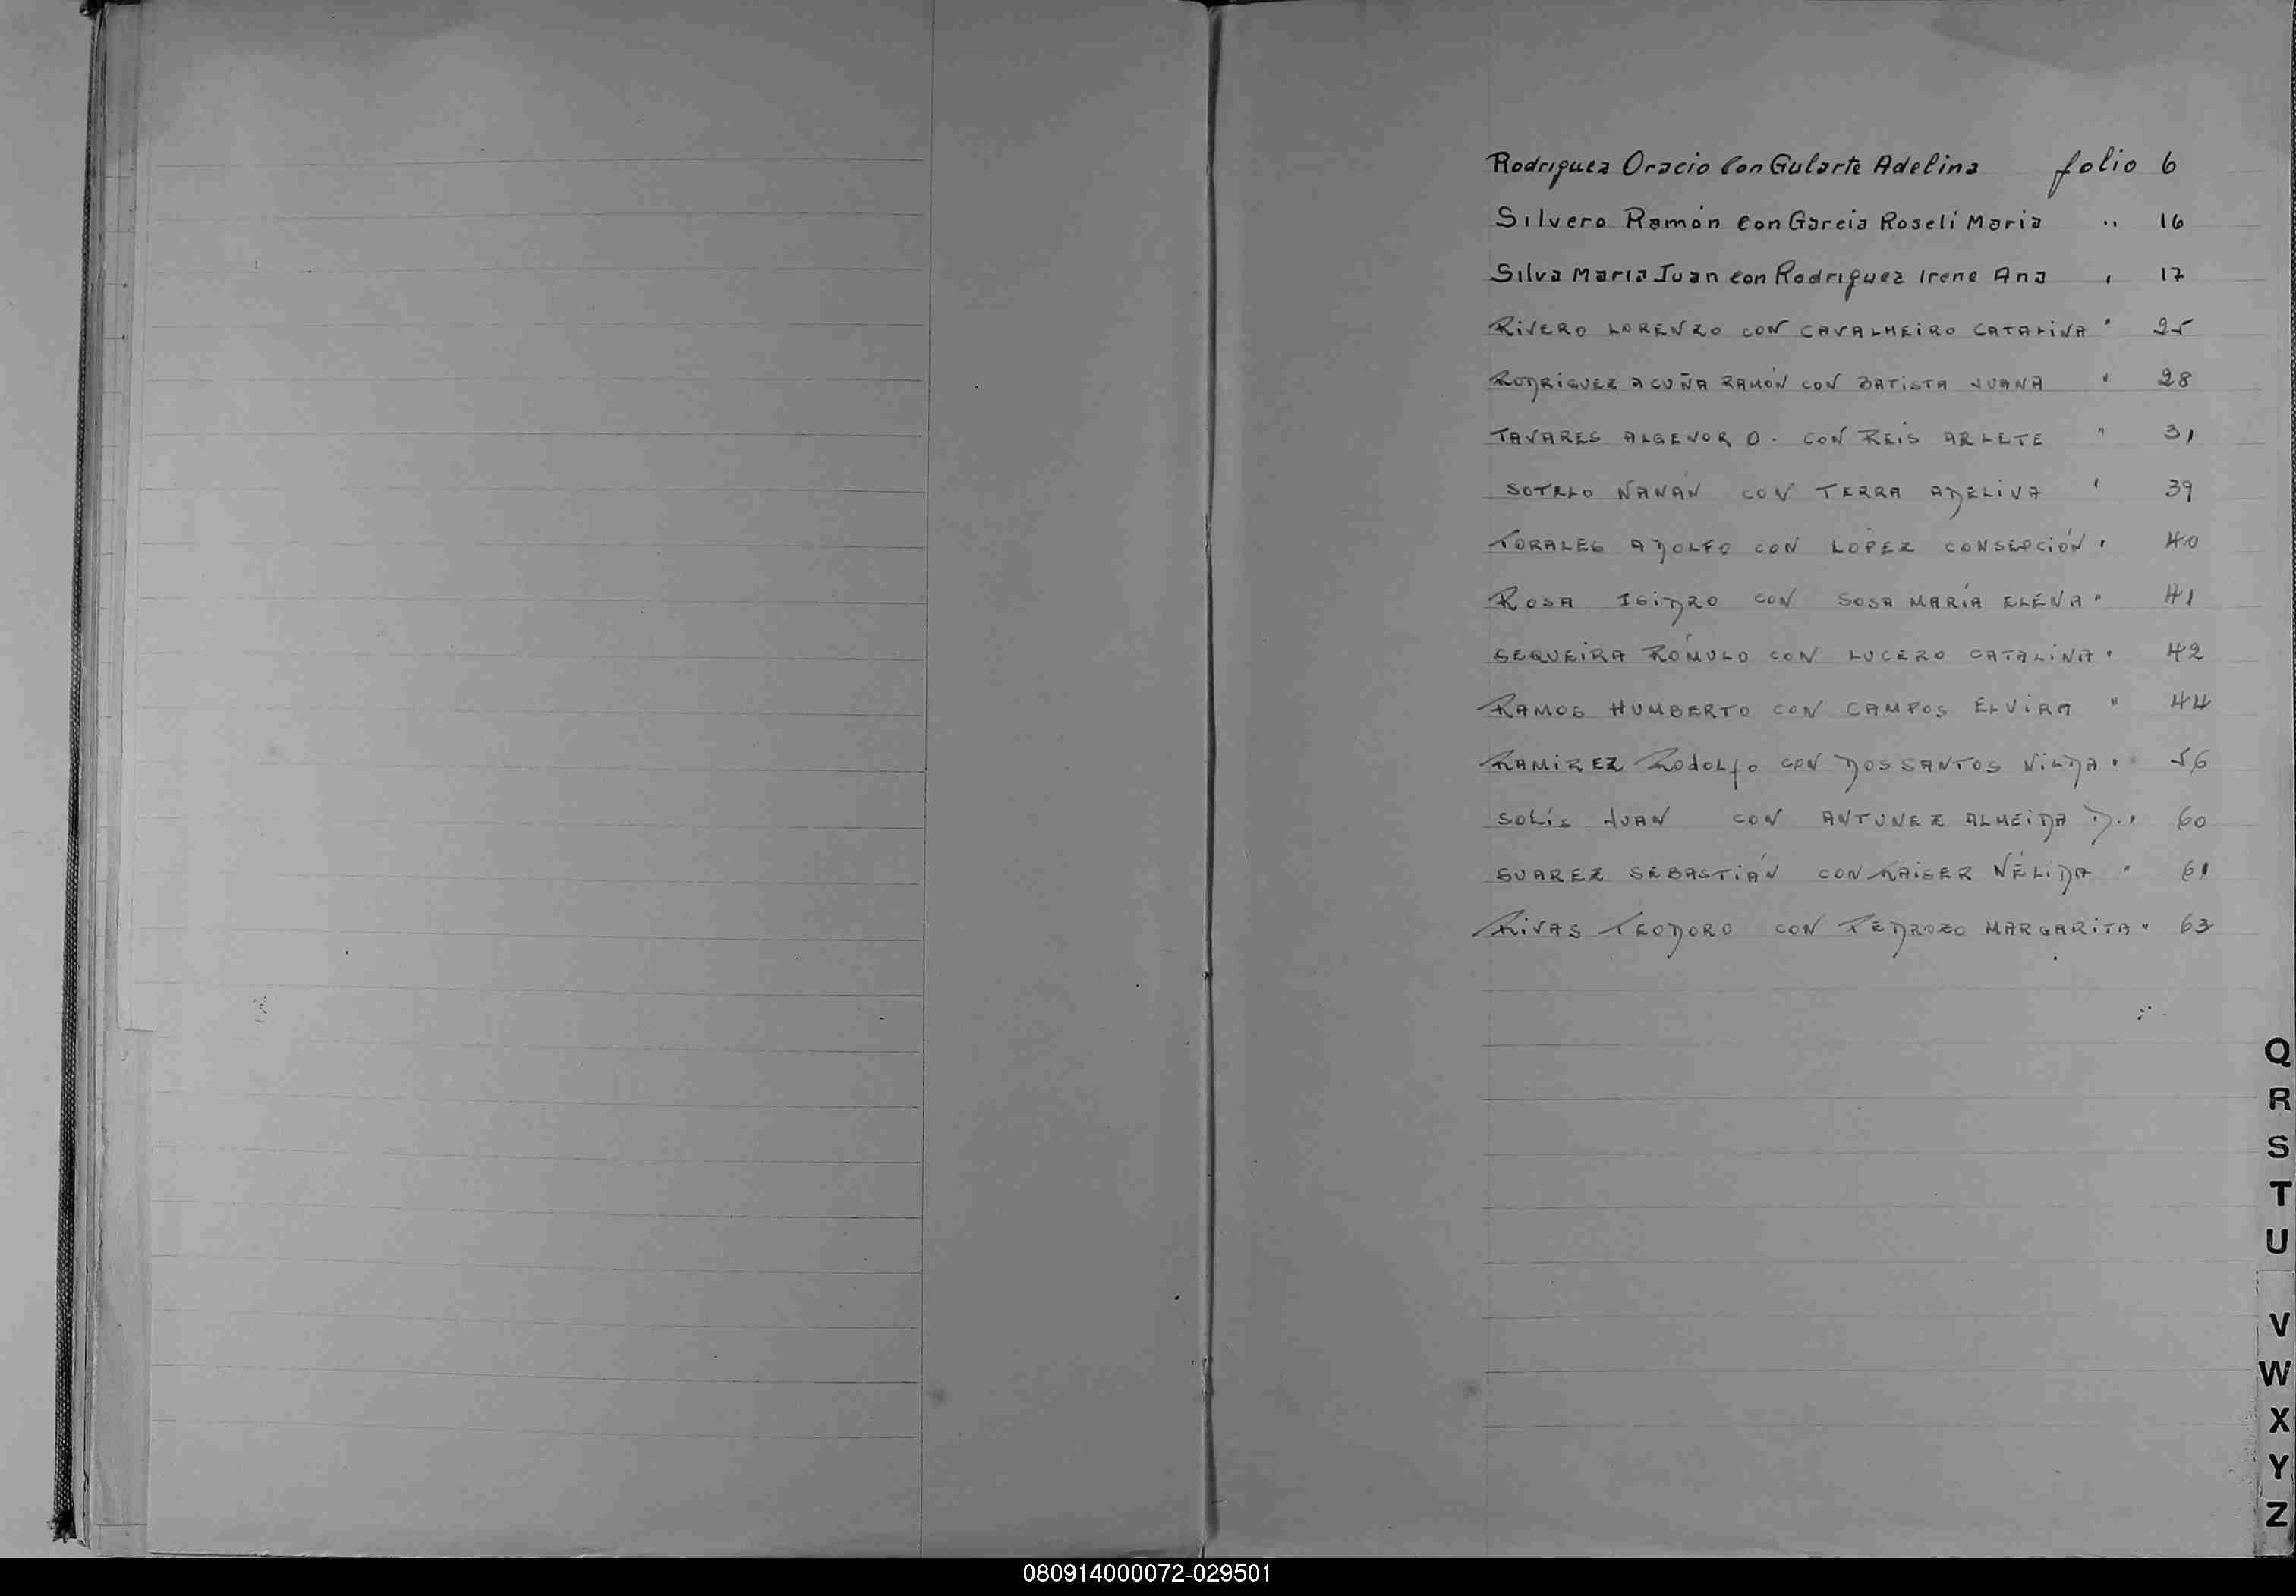 Rodriguez Oracio Con Gularte Adelina folio 6
Silvero Ramón con Garcia Roselí Maria " 16
Silva Maria Juan con Rodriguez Irene Ana " 17
RIVERO LORENZO CON CAVALHEIRO CATALINA " 25
RODRIGUEZ ACUÑA RAMÓN CON BATISTA JUANA " 28
TAVARES ALGENOR D. CON REIS ARLETE " 31
SOTELO ÑANÁN CON TERRA ADELINA " 39
TORALES ADOLFO CON LOPEZ CONSEPCIÓN " 40
ROSA ISIDRO CON SOSA MARÍA ELENA " 41
SEQUEIRA RÓMULO CON LUCERO CATALINA " 42
RAMOS HUMBERTO CON CAMPOS ELVIRA " 44
RAMIREZ RodoLfo CON DOS SANTOS NILDA " 56
SOLÍS JUAN CON ANTUNEZ ALMEIDA D. " 60
SUAREZ SEBASTIÁN CON KAISER NÉLIDA " 61
RIVAS TEODORO CON PEDROZO MARGARITA " 63
Q
R
S
T
U
V
W
X
Y
Z
080914000072-029501